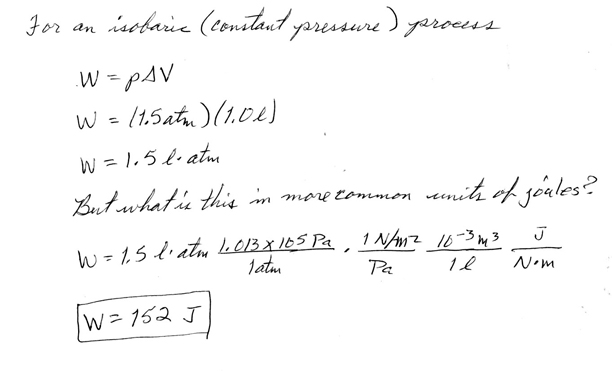 For an isobaric (constant pressure) process
W = pΔV
W = (1.5atm)(1.0l)
W = 1.5 l·atm
But what is this in more common units of joules?
W = 1.5 l·atm 1.013 x 105 Pa / 1atm · 1 N/m2 / Pa 10-3 m3 / 1 l J / N·m
W = 152 J